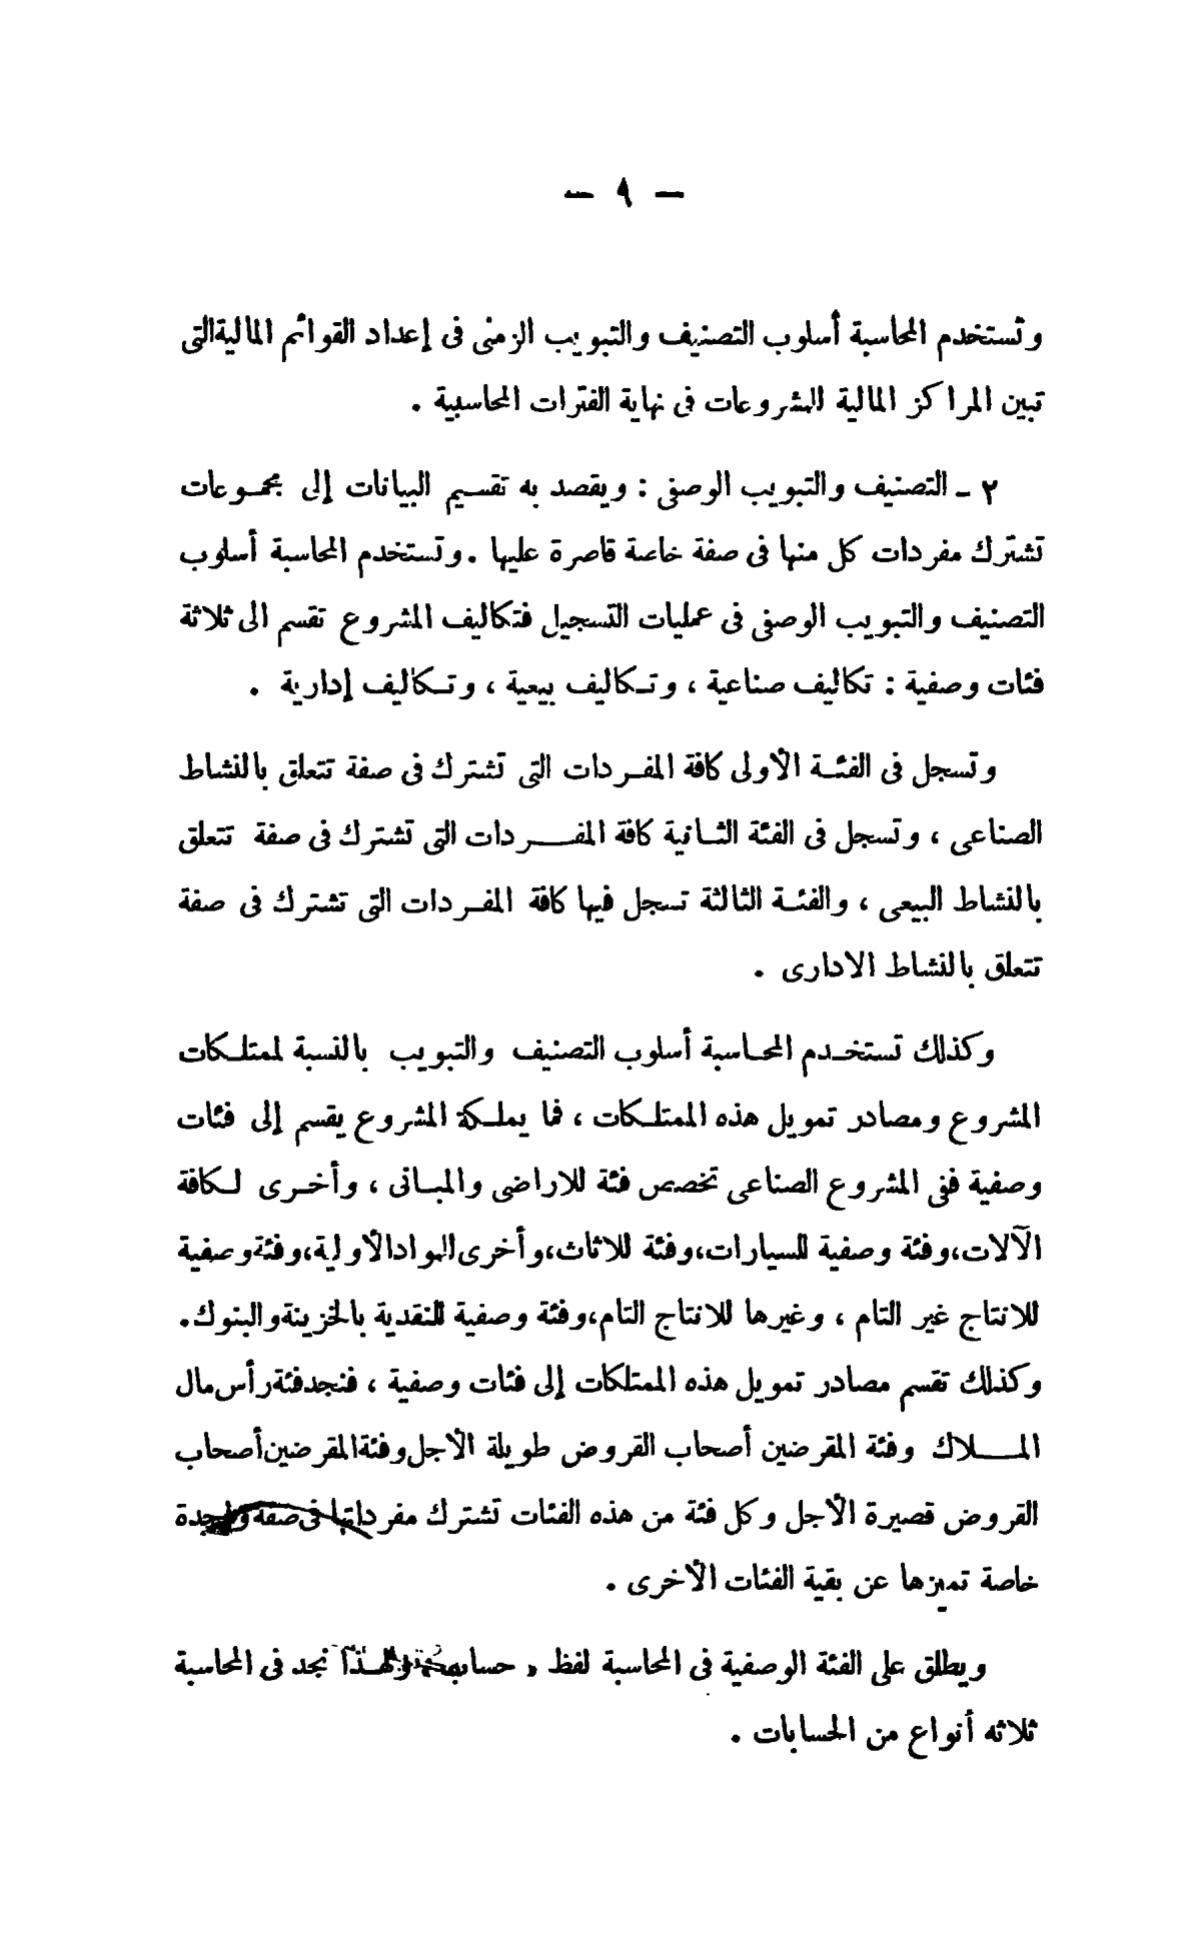 — ٩ —
وتستخدم المحاسبة أسلوب التصنيف والتبويب الزمنى فى إعداد القوائم المالية التى
تبين المراكز المالية للمشروعات فى نهاية الفترات المحاسبية .
٢ ـ التصنيف والتبويب الوصفى : ويقصد به تقسيم البيانات إلى مجموعات
تشترك مفردات كل منها فى صفة خاصة قاصرة عليها . وتستخدم المحاسبة أسلوب
التصنيف والتبويب الوصفى فى عمليات التسجيل فتكاليف المشروع تقسم الى ثلاثة
فئات وصفية : تكاليف صناعية ، وتكاليف بيعية ، وتكاليف إدارية .
وتسجل فى الفئة الأولى كافة المفردات التى تشترك فى صفة تتعلق بالنشاط
الصناعى ، وتسجل فى الفئة الثانية كافة المفردات التى تشترك فى صفة تتعلق
بالنشاط البيعى ، والفئة الثالثة تسجل فيها كافة المفردات التى تشترك فى صفة
تتعلق بالنشاط الادارى .
وكذلك تستخدم المحاسبة أسلوب التصنيف والتبويب بالنسبة لممتلكات
المشروع ومصادر تمويل هذه الممتلكات ، فما يملكة المشروع يقسم إلى فئات
وصفية ففى المشروع الصناعى تخصص فئة للاراضى والمبانى ، وأخرى لكافة
الآلات، وفئة وصفية للسيارات، وفئة للاثاث، وأخرى للمواد الأولية، وفئة وصفية
للانتاج غير التام ، وغيرها للانتاج التام، وفئة وصفية للنقدية بالخزينة والبنوك.
وكذلك تقسم مصادر تمويل هذه الممتلكات إلى فئات وصفية ، فنجد فئة رأس مال
الملاك وفئة المقرضين أصحاب القروض طويلة الأجل وفئة المقرضين أصحاب
القروض قصيرة الأجل وكل فئة من هذه الفئات تشترك مفرداتها فى صفة واحدة
خاصة تميزها عن بقية الفئات الأخرى .
ويطلق على الفئة الوصفية فى المحاسبة لفظ « حساب » ولهذا نجد فى المحاسبة
ثلاثه أنواع من الحسابات .